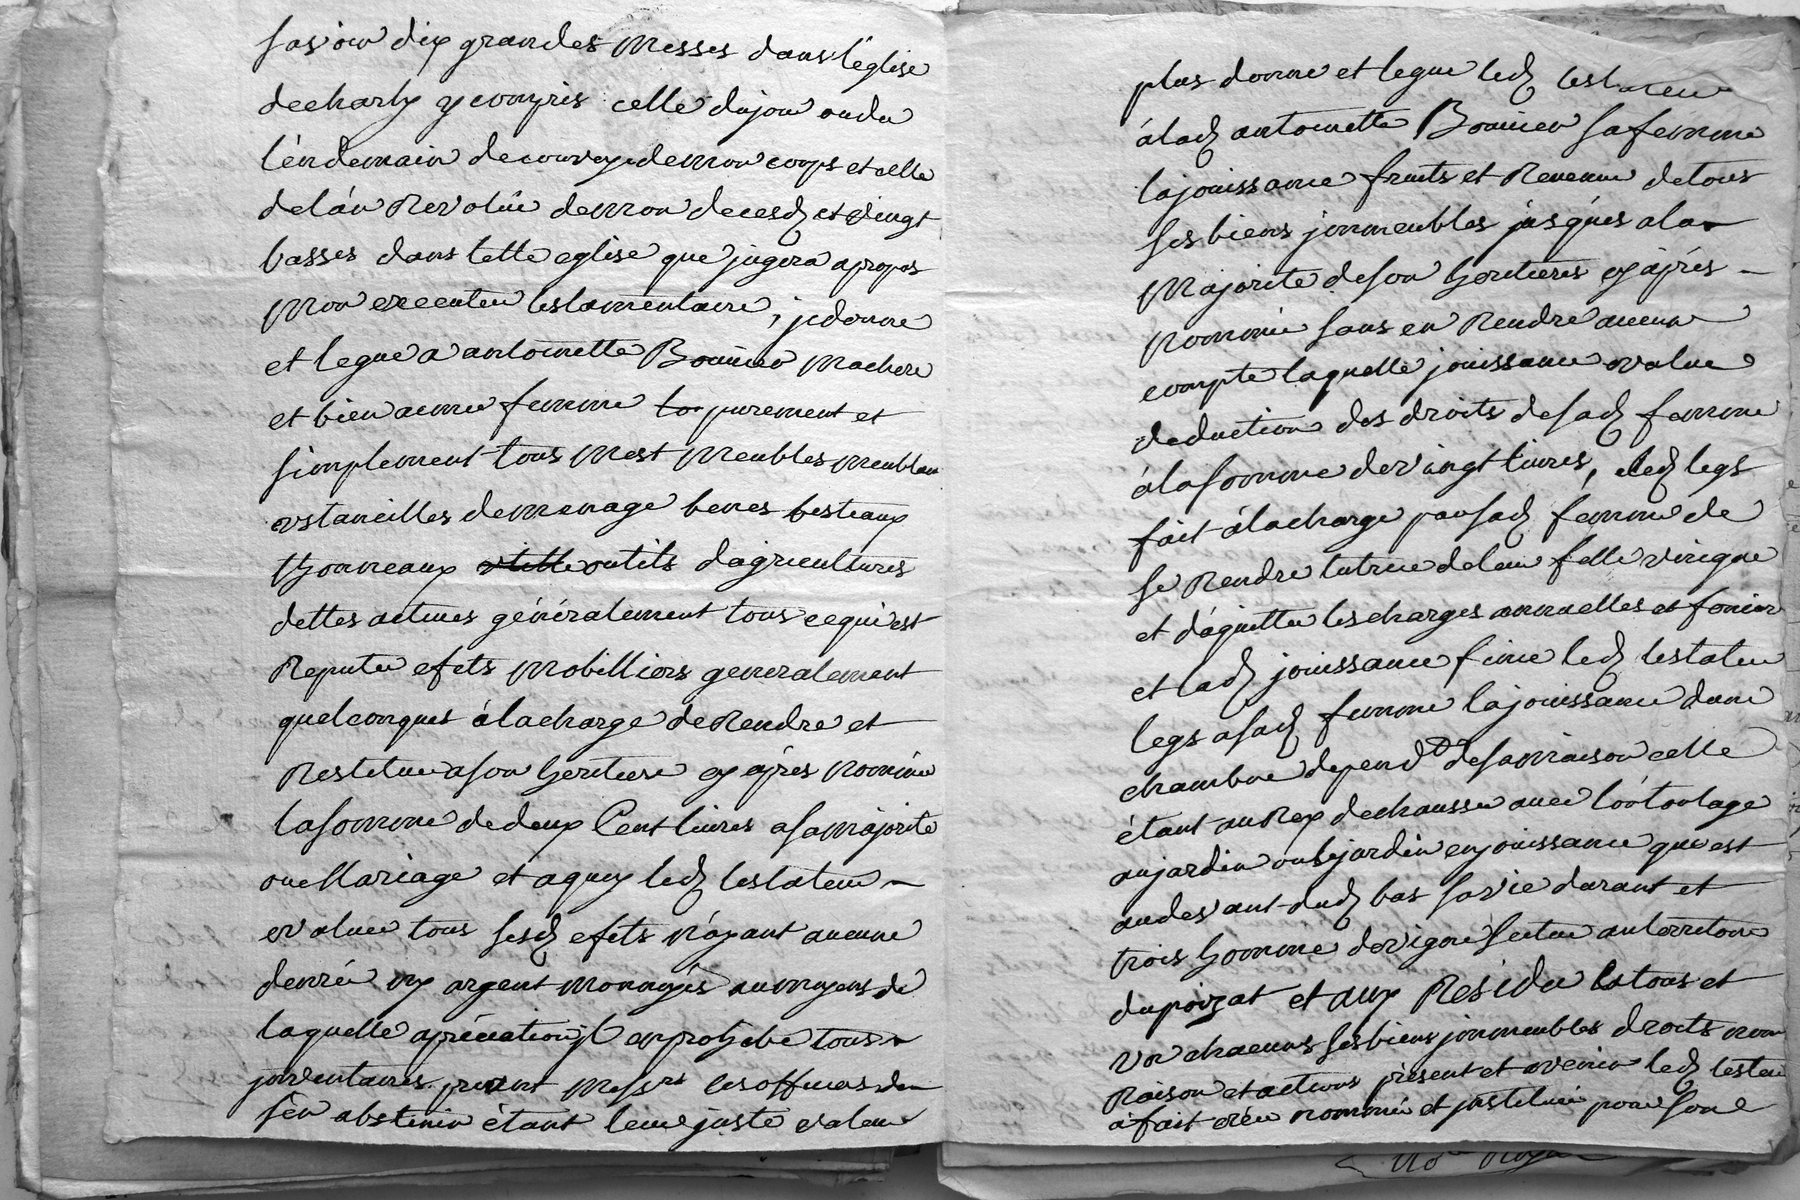 savoir dix grandes Messes dans l'église
decharly y compris celle dujour oudu
léndemain deconvoy demon corps et celle
delán Revolue demon decesd et Vingt
basses dans tette eglise que jugera apropos
Mon executeu testamentaire, jedonne
et legue a antoinette Bonnier Machere
et bien aemee femme to purement et
simplement tous Mest Meubles Meublan
ustancilles demenage benes bestiaux
thonneaux outils dagricultures
dettes actives généralement tous cequi est
Reputer efets Mobilliers generalement
quelconques álacharge deRendre et
Restituer ason heritiere cy ápres Nommee
lasomme dedeux Cent livres asamajorité
oue Mariage et aquoy led testateu
evaluee tous sesd efets Náyant aucune
denrée ny argent monnoyés aumoyens de
laquelle apréciation il en prohibe tous
jnventaires priant Messrs lesofficiers de
sén abstenir étant leure juste valeur
plus donne et legue led testateur
álad antoinette Bonnier safemme
lajouissance fruits et Revenue detous
ses biens jmmeubles jusqúes ala
Majorité deson heritieres cy ápres
Nommée sans en Rendre aucune
compte laquelle jouissance evalue
deduction des droits desad femme
álasomme devingt livres, led legs
fait álacharge parsad femme de
se Rendre tutrice deleur fille unique
et dáquitter lescharges annuelles et foncier
et lad jouissance finie led testateu
legs asad femme lajouissance dune
chambre depend.te desamaison celle
étant auRex dechaussee avec
aujardin oulejardin enjouissance que est
audevant dud bas savie durant et
trois homme devigne scitue auterritoire
dupoizat et aux Residu
un chacuns sesbiens jmmeubles droits nom
Raison et actions présent et avenir led testeu
áfait créé nommée et jnstituée pour sone